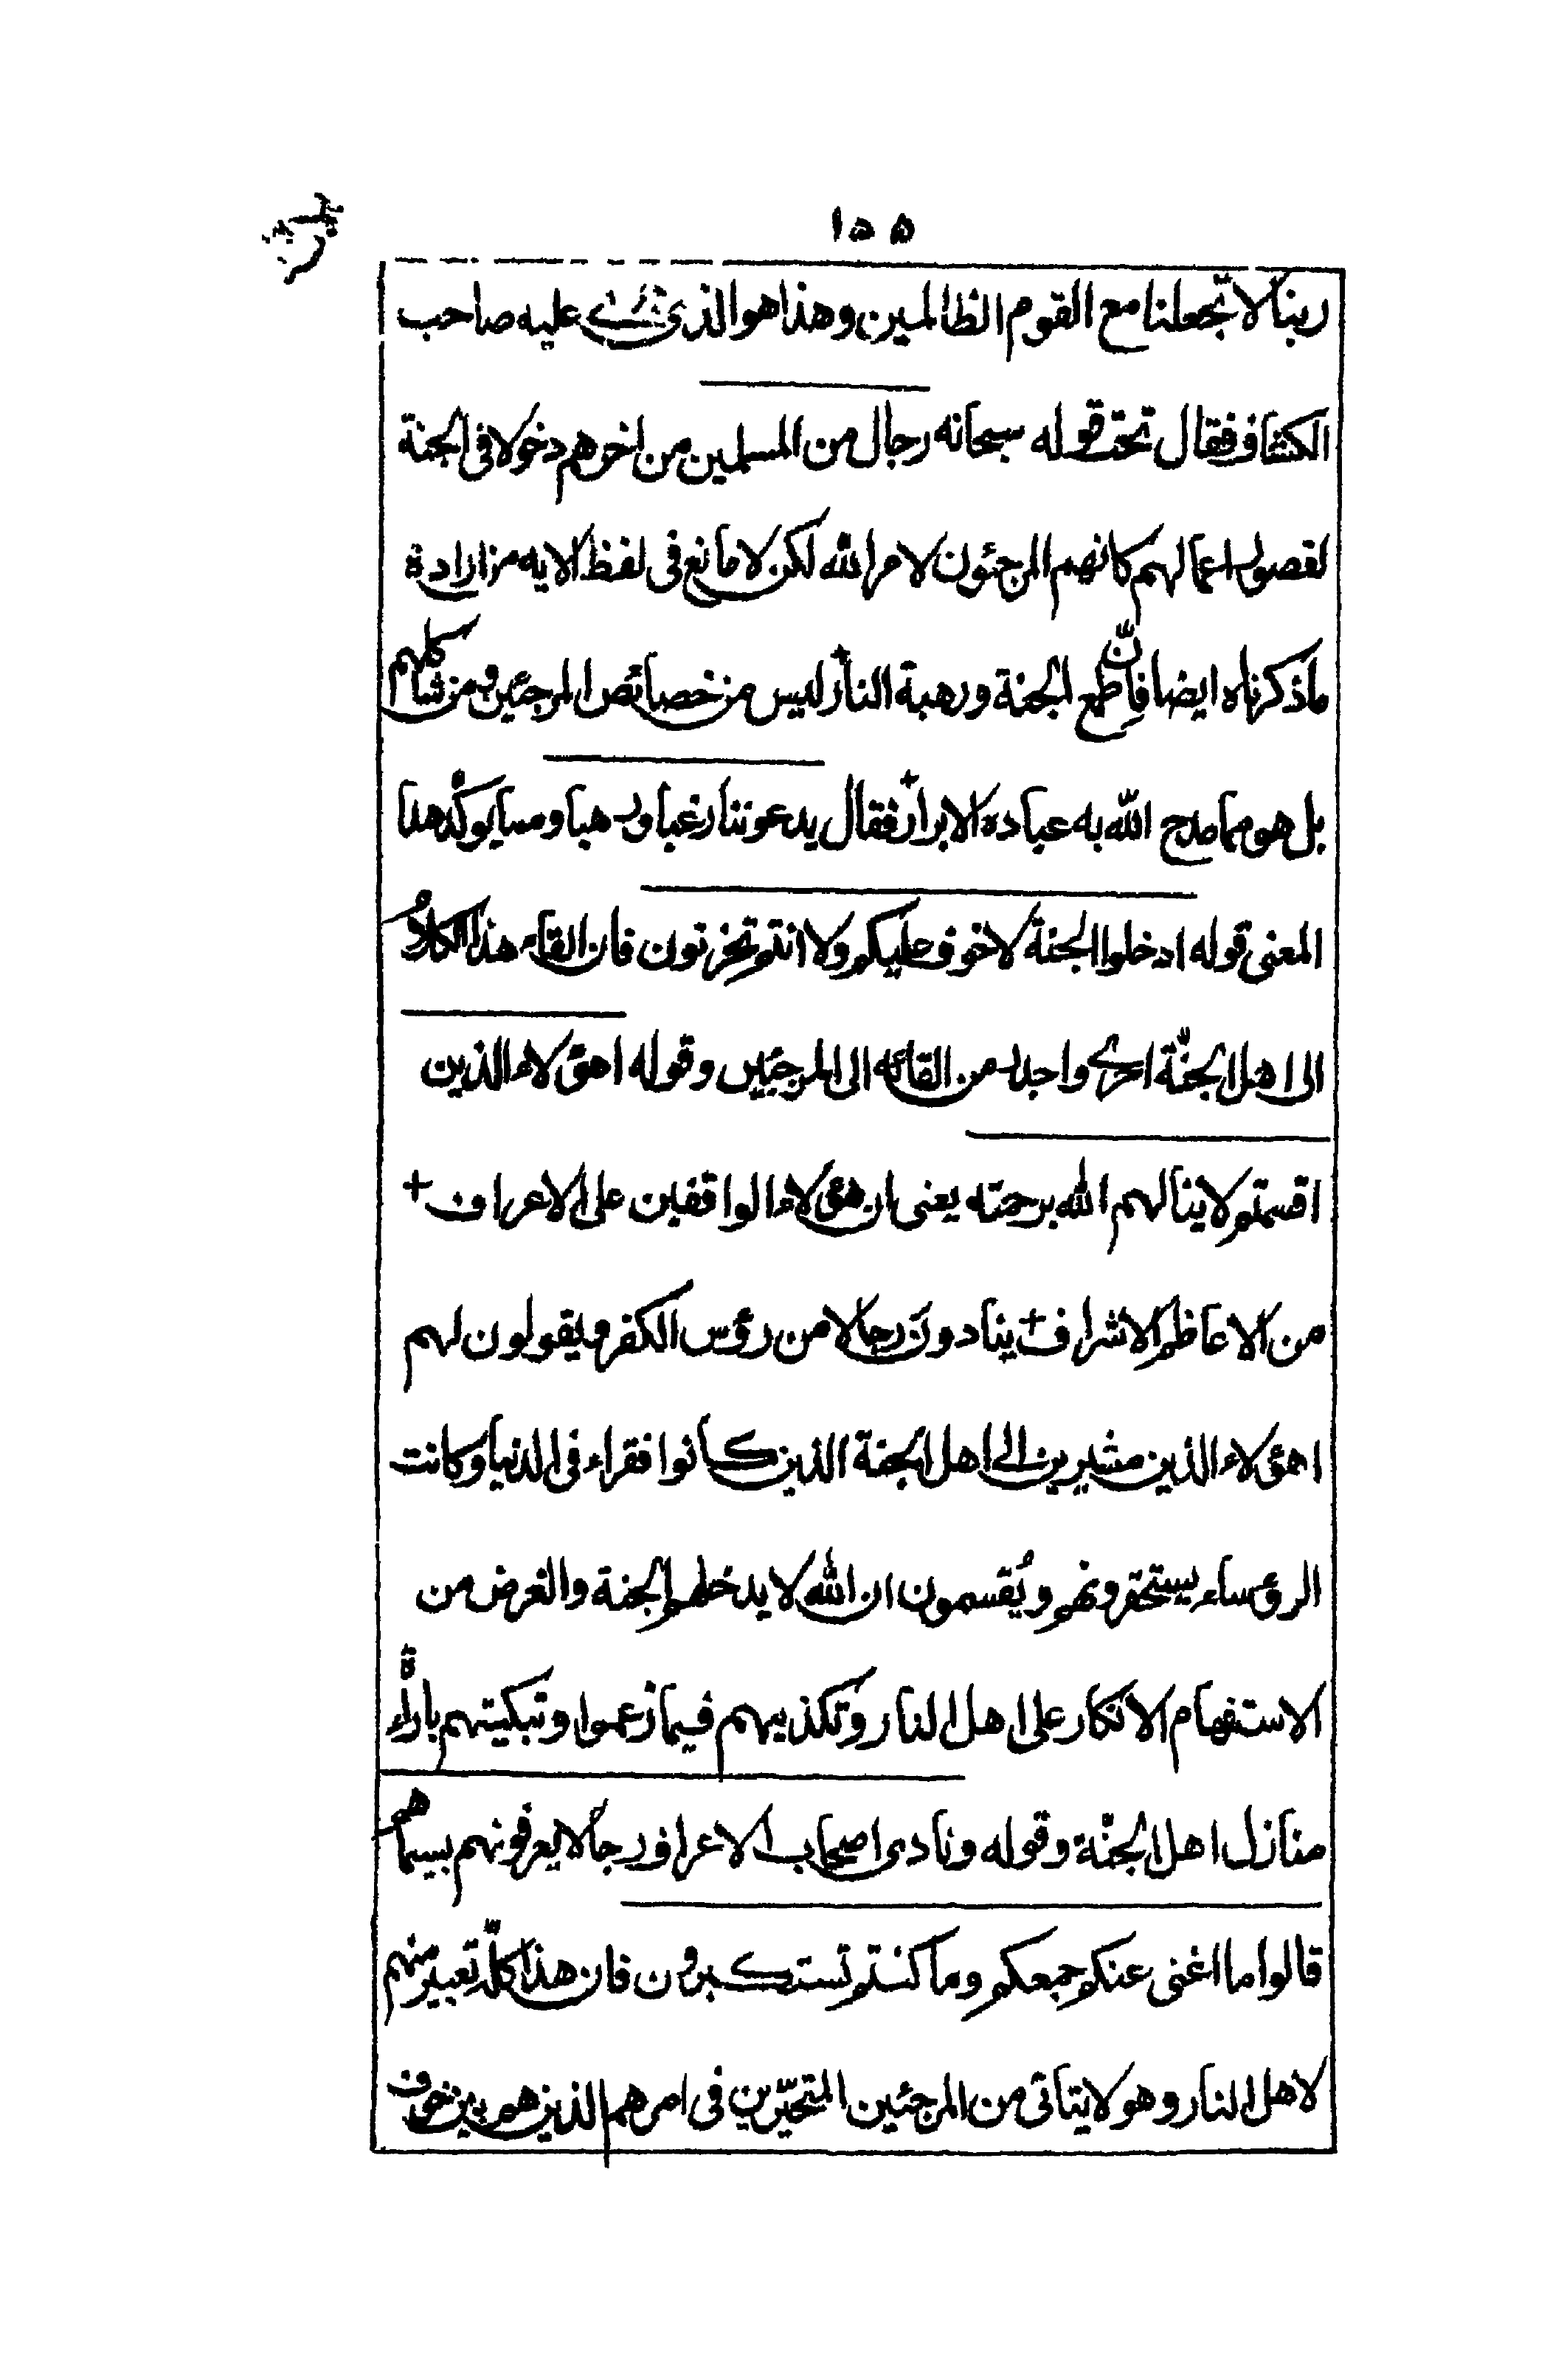 ١٥٥
ربنا لا تجعلنا مع القوم الظالمين وهذا هو الذى جرى عليه صاحب
الكشاف فقال تحت قوله سبحانه رجال من المسلمين من اخرهم دخولا فى الجنة
لقصور اعمالهم كانهم المرجئون لامر الله لكن لا مانع فى لفظ الايه من ارادة
ماذكرناه ايضا فانّ طمع الجنة ورهبة النار ليس من خصائص المرجئين ومن شاكلهم
بل هو مما مدح الله به عباده الابرار فقال يدعوننا رغبا ورهبا ومما يوكّد هذا
المعنى قوله ادخلوا الجنة لا خوف عليكم ولا انتم تحزنون فان القاء هذا الكلام
الى اهل الجنّة احرى واجدر من القائه الى المرجئين وقوله اهؤلاء الذين
اقسمتم لا ينالهم الله برحمته يعنى ان هؤلاء الواقفين على الاعراف +
من الاعاظم الاشراف ينادون رجالا من رؤس الكفر ويقولون لهم
اهؤلاء الذين مشيرين الى اهل الجنة الذين كانوا فقراء فى الدنيا وكانت
الرؤساء يستحقرونهم ويُقسمون ان الله لا يدخلهم الجنة والغرض من
الاستفهام الانكار على اهل النار وتكذيبهم فيما زعموا وتبكيتهم باراءة
منازل اهل الجنّة وقوله ونادى اصحاب الاعراف رجالا يعرفونهم بسيماهم
قالوا ما اغنى عنكم جمعكم وما كنتم تستكبرون فان هذا كلّه تعيير منهم
لاهل النار وهو لا يتاتى من المرجئين المتحيّرين فى امرهم الذين هم بين خوف